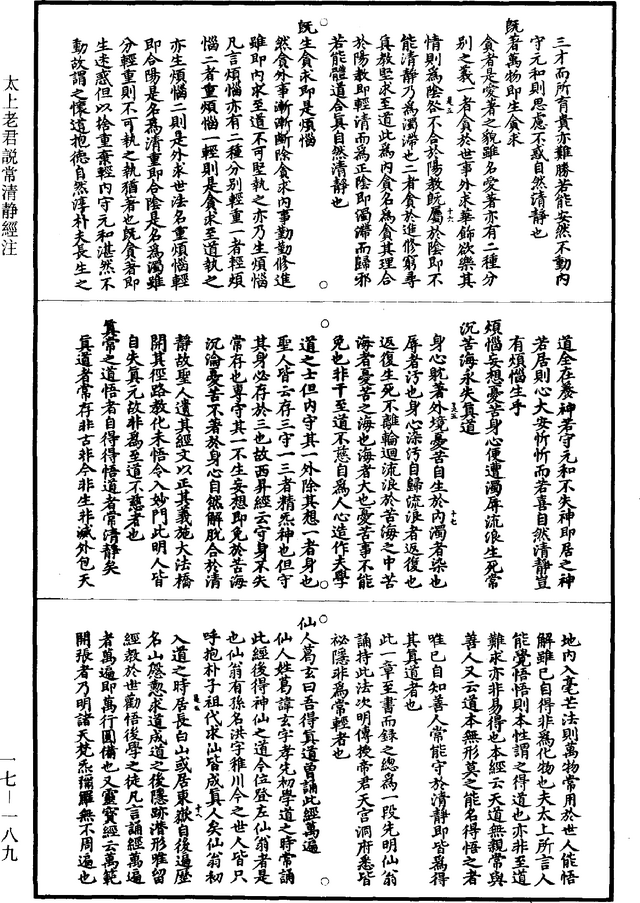 太上老君説常清静經注
三才而所有貴亦難勝若能安然不動內
守元和則思慮不惑自然清靜也
既著萬物即生貪求
貪者是愛著之貌雖名愛著亦有二種分
別之義一者貪於世事外求華飾欲樂其
情則為陰谷不合於陽教既屬於陰即不
能清靜乃為濁滯也二者貪於進修窮尋
真教堅求至道此為內貪名為貪其理合
於陽教即輕清而為正陰即濁滯而歸邪
若能體道合真自然清靜也
既生貪求即是煩惱
然貪外事漸漸斷除貪求內事勤勤修進
雖即內求至道不可堅執之亦乃生煩惱
凡言煩惱亦有二種分別輕重一者輕煩
惱二者重煩惱一輕則是貪求至道執之
亦生煩惱二則是外求世法名重煩惱輕
即合陽是名為清重即合陰是名為濁雖
分輕重則不可執之執猶著也既貪著即
生迷惑但以捨重棄輕內守元和湛然不
動故謂之懷道抱德自然淳朴夫長生之
道全在養神若守元和不失神即居之神
若居則心大安忻忻而若喜自然清靜豈
有煩惱生乎
煩惱妄想憂苦身心便遭濁辱流浪生死常
沉苦海永失真道
身心躭著外境憂苦自生於內濁者染也
辱者汚也身心染汚自歸流浪者返復也
返復生死不離輪迴流浪於苦海之中苦
海者憂苦之海也海者大也憂苦事不能
免也非干至道不慈自為人心造作夫學
道之士但內守其一外除其想一者身也
聖人皆云存三守一三者精炁神也但守
其身必存於三也故西昇經云守身不失
常存也專守其一不生妄想即免於苦海
沉淪憂苦不著於身心自然解脫合於清
靜故聖人遺其經文以正其義施大法橋
開其徑路教化未悟令入妙門此明人皆
自失真元故非為至道不慈者也
真常之道悟者自得得悟道者常清靜矣
真道者常存非古非今非生非滅外包天
地內入毫芒法則萬物常用於世人能悟
解雖已自得非為化物也夫太上所言人
能覺悟悟則本性謂之得道也亦非至道
難求亦非易得也本經云天道無親常與
善人又云道本無形莫之能名得悟之者
唯已自知善人常能守於清靜即皆為得
其真道者也
此一章至書而錄之總為一段先明仙翁
誦持此法次明傳授帝君天宮洞府悉皆
祕隱非為常輕者也
仙人葛玄曰吾得真道曾誦此經萬遍
仙人姓葛諱玄字孝先初學道之時常誦
此經後得神仙之道今位登左仙翁者是
也仙翁有孫名洪字雅川今之世人皆只
呼抱朴子祖代求仙皆成真人矣仙翁初
入道之時居長白山或居東嶽自後遍歷
名山慇懃求道成道之後隱跡潛形唯留
經教於世勸悟後學之徒凡言誦經萬遍
者萬遍即萬行圓備也又靈寶經云萬範
開張者乃明諸天梵炁彌羅無不周遍也
一七—一八九